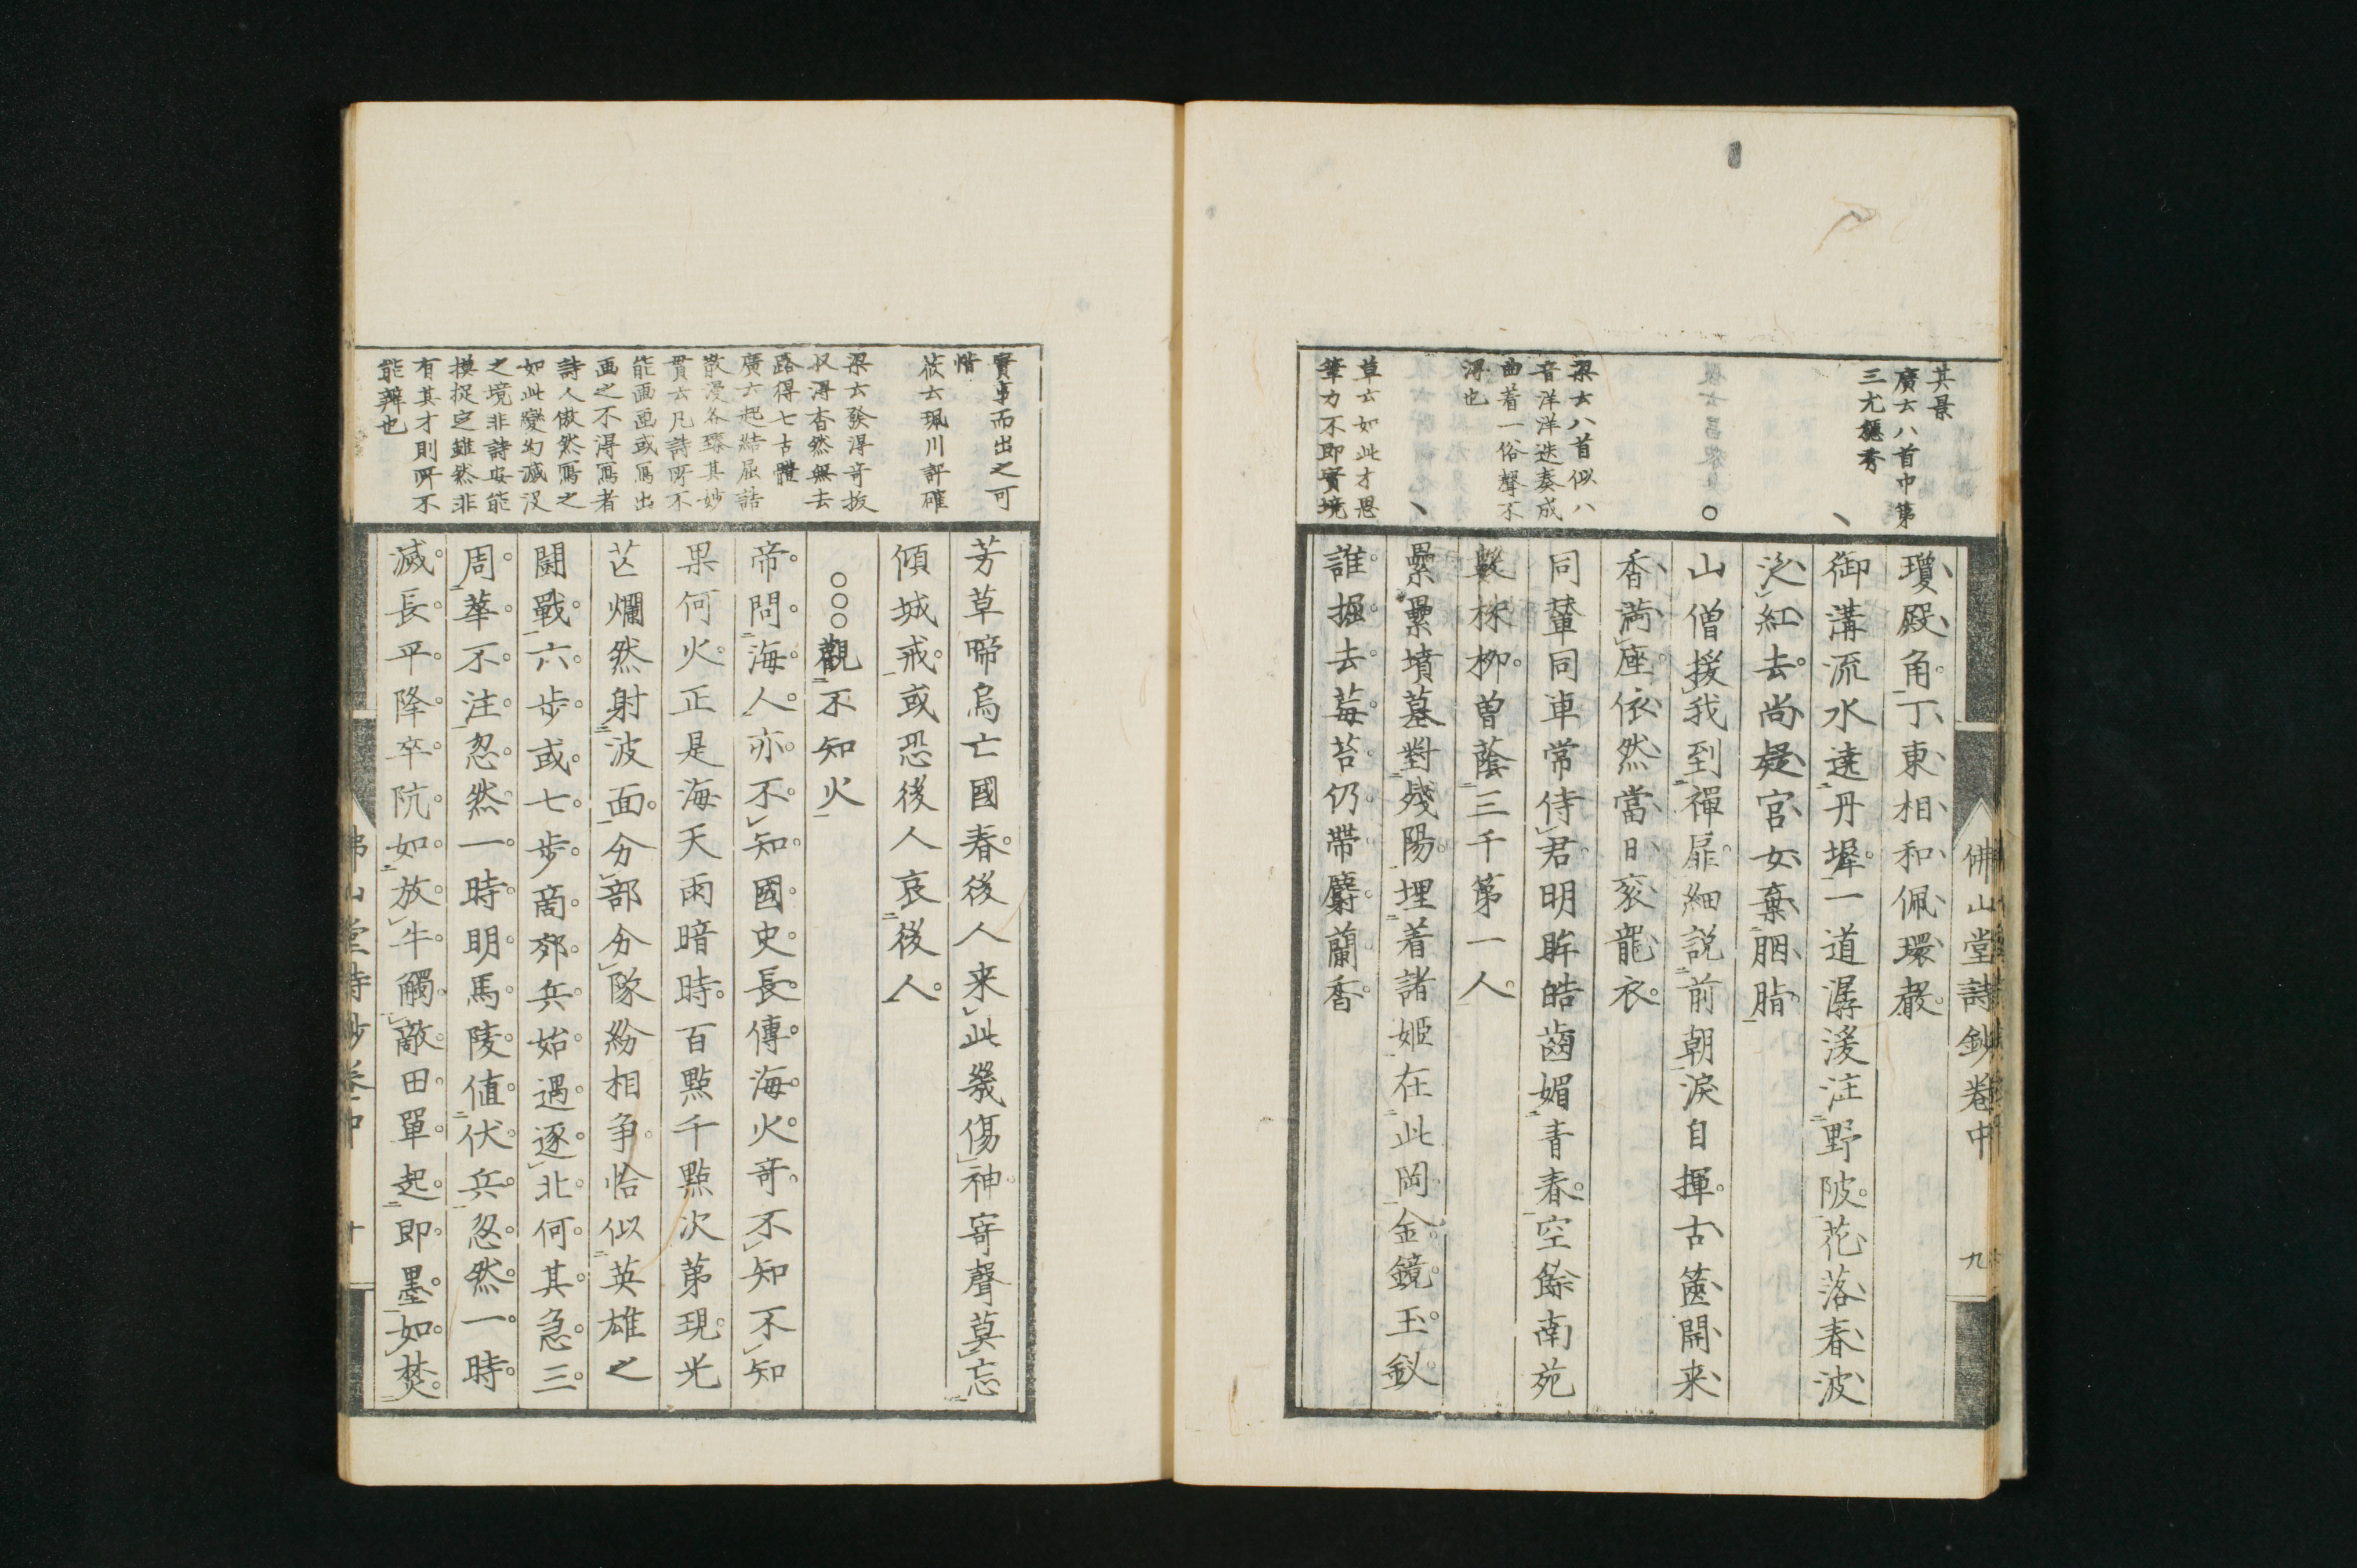 其景
廣云八首中第
三尤穏秀
梁云八首似八
音洋洋迭奏成
曲着一俗聲不
淂也
草云如此才思
筆力不即實境
瓊殿角丁東相和佩環聲
御溝流水遶丹墀一道潺湲注野陂花落春波
泛紅去尚疑宮女棄胭脂
山僧援我到禪扉細説前朝淚自揮古篋開来
香満座依然當日衮龍衣
同輦同車常侍君明眸皓齒媚青春空餘南苑
數株柳曽蔭三千第一人
纍纍墳墓對殘陽埋着諸姬在此岡金鏡玉釵
誰掘去莓苔仍帶麝蘭香
佛山堂詩鈔卷中 九
實事而出之可
惜
依云珮川評確
梁云發淂竒拔
収淂杳然無去
路得七古軆
廣云起結屈詰
散漫各臻其妙
貫云凡詩所不
能画画或寫出
画之不淂寫者
詩人傲然寫之
如此變幻滅没
之境非詩安能
摸捉㝎雖然非
有其才則所不
能辨也
芳草啼烏亡國春後人来此幾傷神寄聲莫忘
傾城戒或恐後人哀後人
○○○觀不知火
帝問海人亦不知國史長傳海火竒不知不知
果何火正是海天雨暗時百點千點次第現光
芒爛然射波面分部分隊紛相争恰似英雄之
鬪戰六步或七步啇郊兵始遇逐北何其急三
周華不注忽然一時明馬陵値伏兵忽然一時
滅長平降卒阬如放牛觸敵田單起即墨如焚
佛山堂詩鈔卷中 十